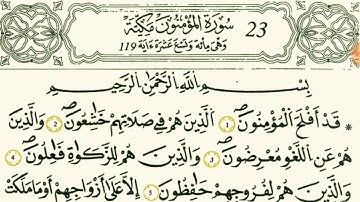 سُورَةُ المُؤْمِنُونَ مَكِّيَّةٌ 23
وَهِيَ مِائَةٌ وَتِسْعَ عَشْرَةَ ءَايَةً 119
بِسْمِ اللَّهِ الرَّحْمَٰنِ الرَّحِيمِ
* قَدْ أَفْلَحَ ٱلْمُؤْمِنُونَ 1 ٱلَّذِينَ هُمْ فِى صَلَاتِهِمْ خَٰشِعُونَ 2 وَٱلَّذِينَ
هُمْ عَنِ ٱللَّغْوِ مُعْرِضُونَ 3 وَٱلَّذِينَ هُمْ لِلزَّكَوٰةِ فَٰعِلُونَ 4
وَٱلَّذِينَ هُمْ لِفُرُوجِهِمْ حَٰفِظُونَ 5 إِلَّا عَلَىٰ أَزْوَٰجِهِمْ أَوْ مَا مَلَكَتْ